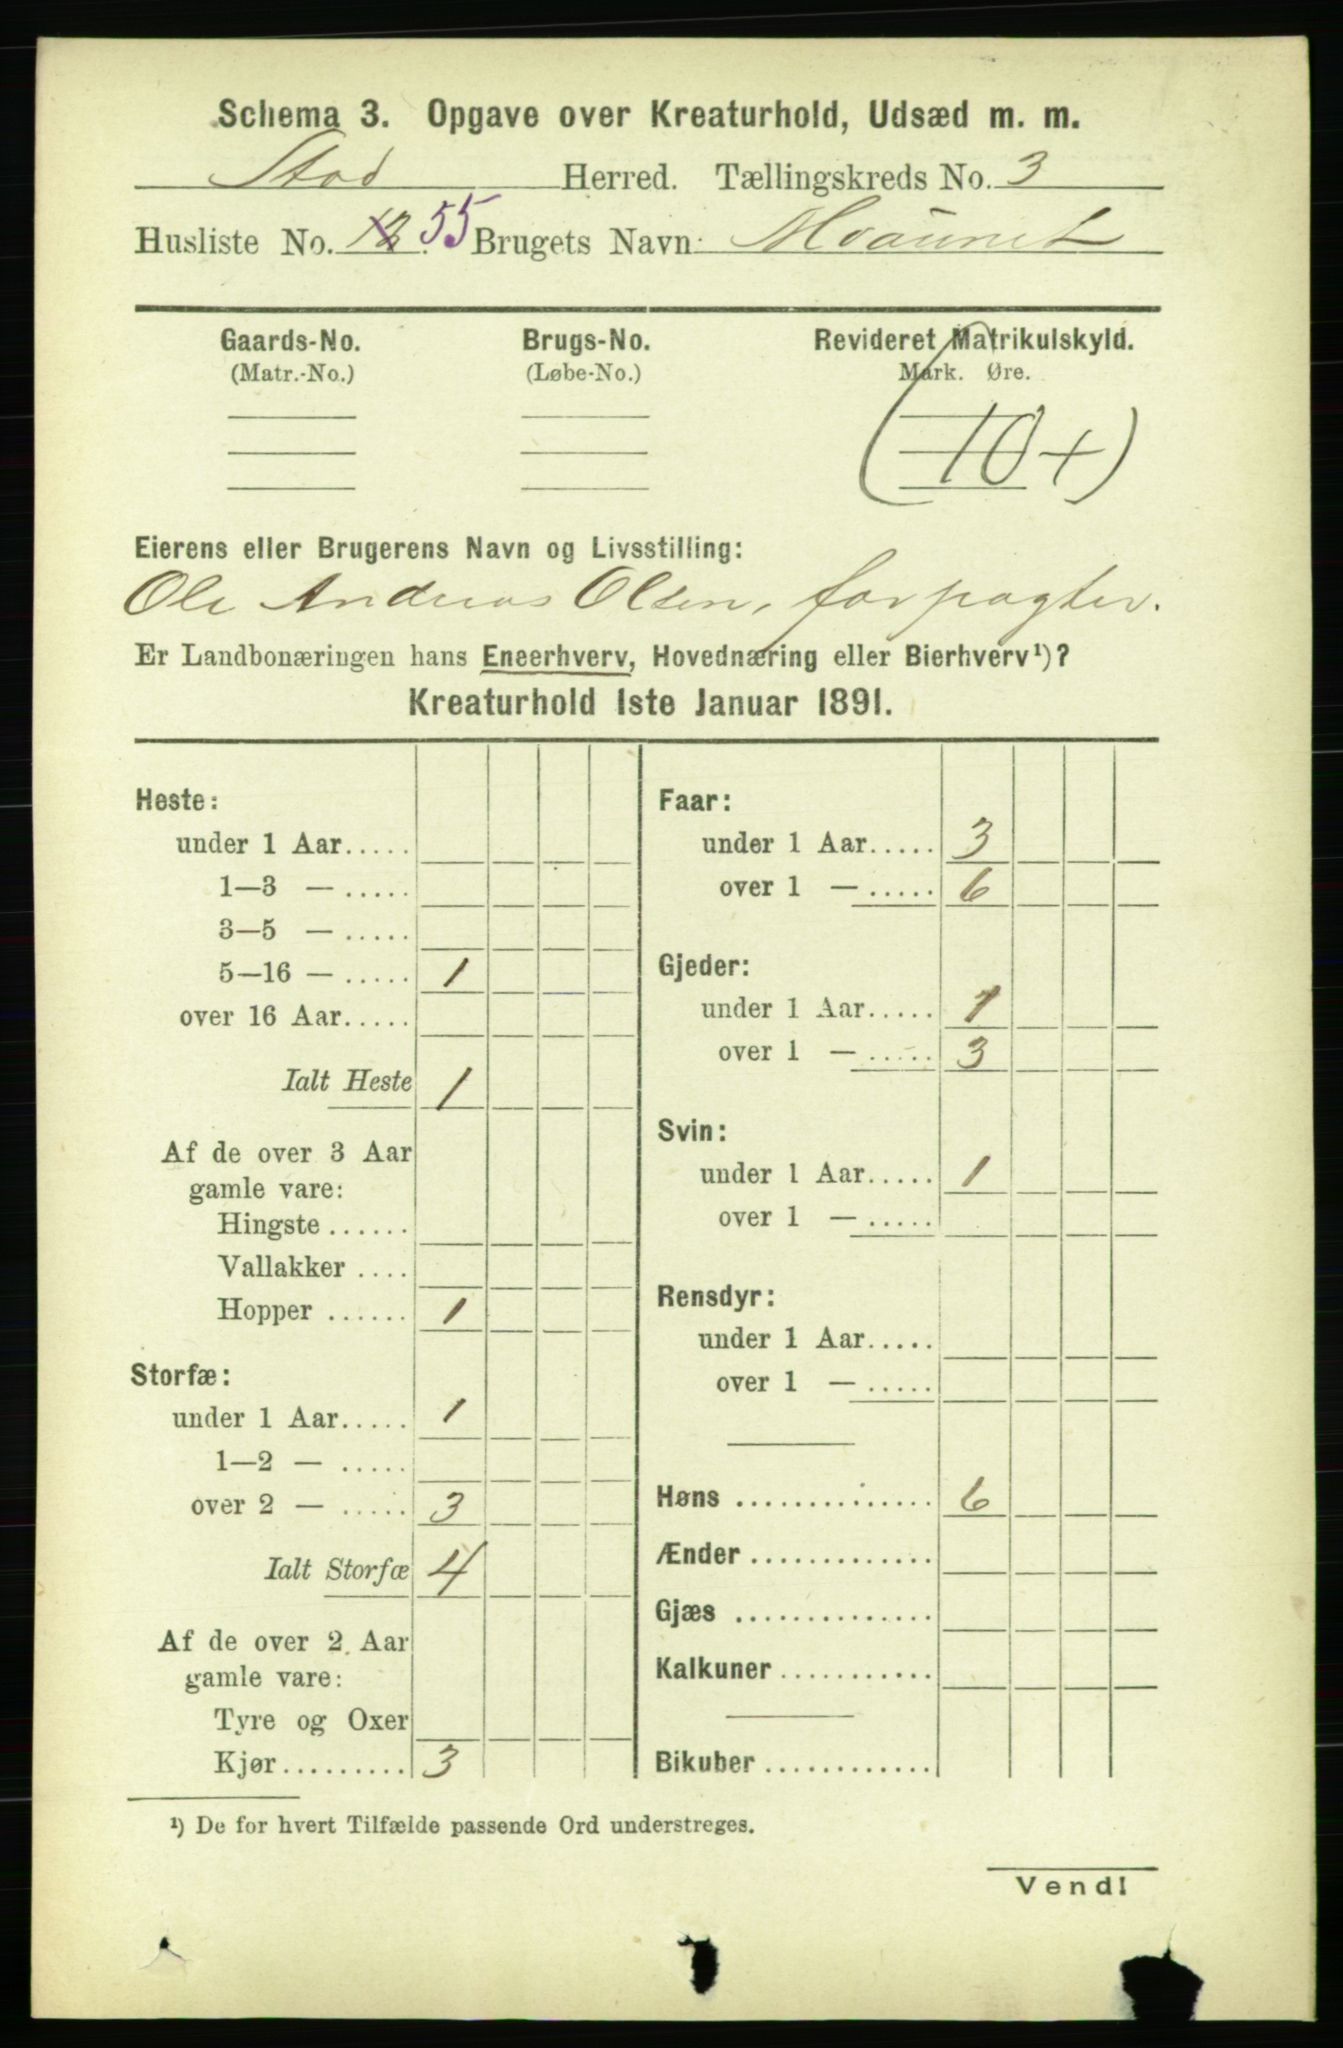 Schema 3. Opgave over Kreaturhold, Udsæd m. m.
Stod Herred. Tællingskreds No. 3
Husliste No. 12. 55 Brugets Navn: Moaunet
Gaards-No. Brugs-No. Revideret Matrikulskyld.
(Matr.-No.) (Løbe-No.) Mark. Øre.
(10+)
Eierens eller Brugerens Navn og Livsstilling:
Ole Andreas Olsen, forpagter.
Er Landbonæringen hans Eneerhverv, Hovednæring eller Bierhverv¹)?
Kreaturhold 1ste Januar 1891.
Heste:
under 1 Aar.....
1—3 — .....
3—5 — .....
5—16 — ..... 1
over 16 Aar.....
Ialt Heste 1
Af de over 3 Aar
gamle vare:
Hingste ......
Vallakker ....
Hopper ...... 1
Storfæ:
under 1 Aar..... 1
1—2 — .....
over 2 — ..... 3
Ialt Storfæ 4
Af de over 2 Aar
gamle vare:
Tyre og Oxer
Kjør......... 3
Faar:
under 1 Aar..... 3
over 1 — ..... 6
Gjeder:
under 1 Aar..... 1
over 1 — ..... 3
Svin:
under 1 Aar..... 1
over 1 — .....
Rensdyr:
under 1 Aar.....
over 1 — .....
Høns .............. 6
Ænder .............
Gjæs ..............
Kalkuner ...........
Bikuber ............
¹) De for hvert Tilfælde passende Ord understreges.
Vend!